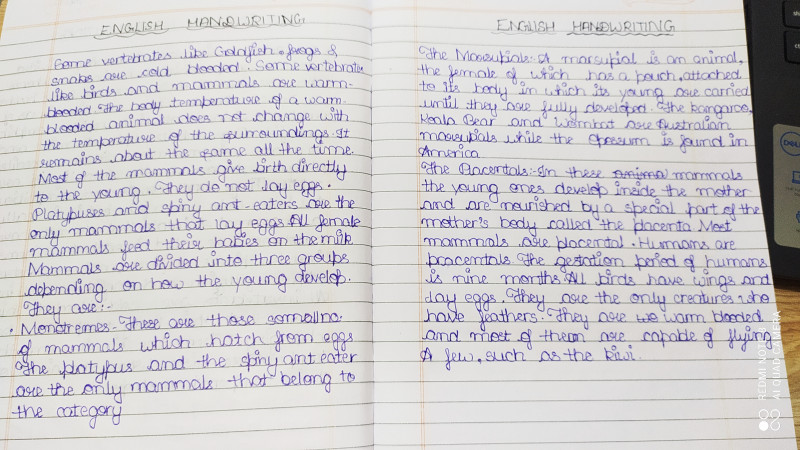 ENGLISH HANDWRITING
Some vertebrates like Goldfish, frogs &
snakes are cold blooded. Some vertebrates
like birds and mammals are warm-
blooded. The body temperature of a warm
blooded animal does not change with
the temperature of the surroundings. It
remains about the same all the time.
Most of the mammals give birth directly
to the young. They do not lay eggs.
Platypuses and spiny ant-eaters are the
only mammals that lay eggs. All female
mammals feed their babies on the milk.
Mammals are divided into three groups
depending on how the young develop.
They are:-
• Monotremes- These are those
of mammals which hatch from eggs
The platypus and the spiny ant eater
are the only mammals that belong to
the category
ENGLISH HANDWRITING
The Marsupials:- A marsupial is an animal,
the female of which has a pouch, attached
to its body in which its young are carried
until they are fully developed. The kangaroo,
Koala Bear and Wombat are Australian
marsupials while the opossum is found in
America
The Placentals:- In these mammals
the young ones develop inside the mother
and are nourished by a special part of the
mother's body called the placenta. Most
mammals are placental. Humans are
pracentals. The gestation period of humans
is nine months. All birds have wings and
lay eggs. They are the only creatures who
have feathers. They are warm blooded
and most of them are capable of flying
A few, such as the kiwi.
DELL
REDMI NOTE 8
AI QUAD CAMERA